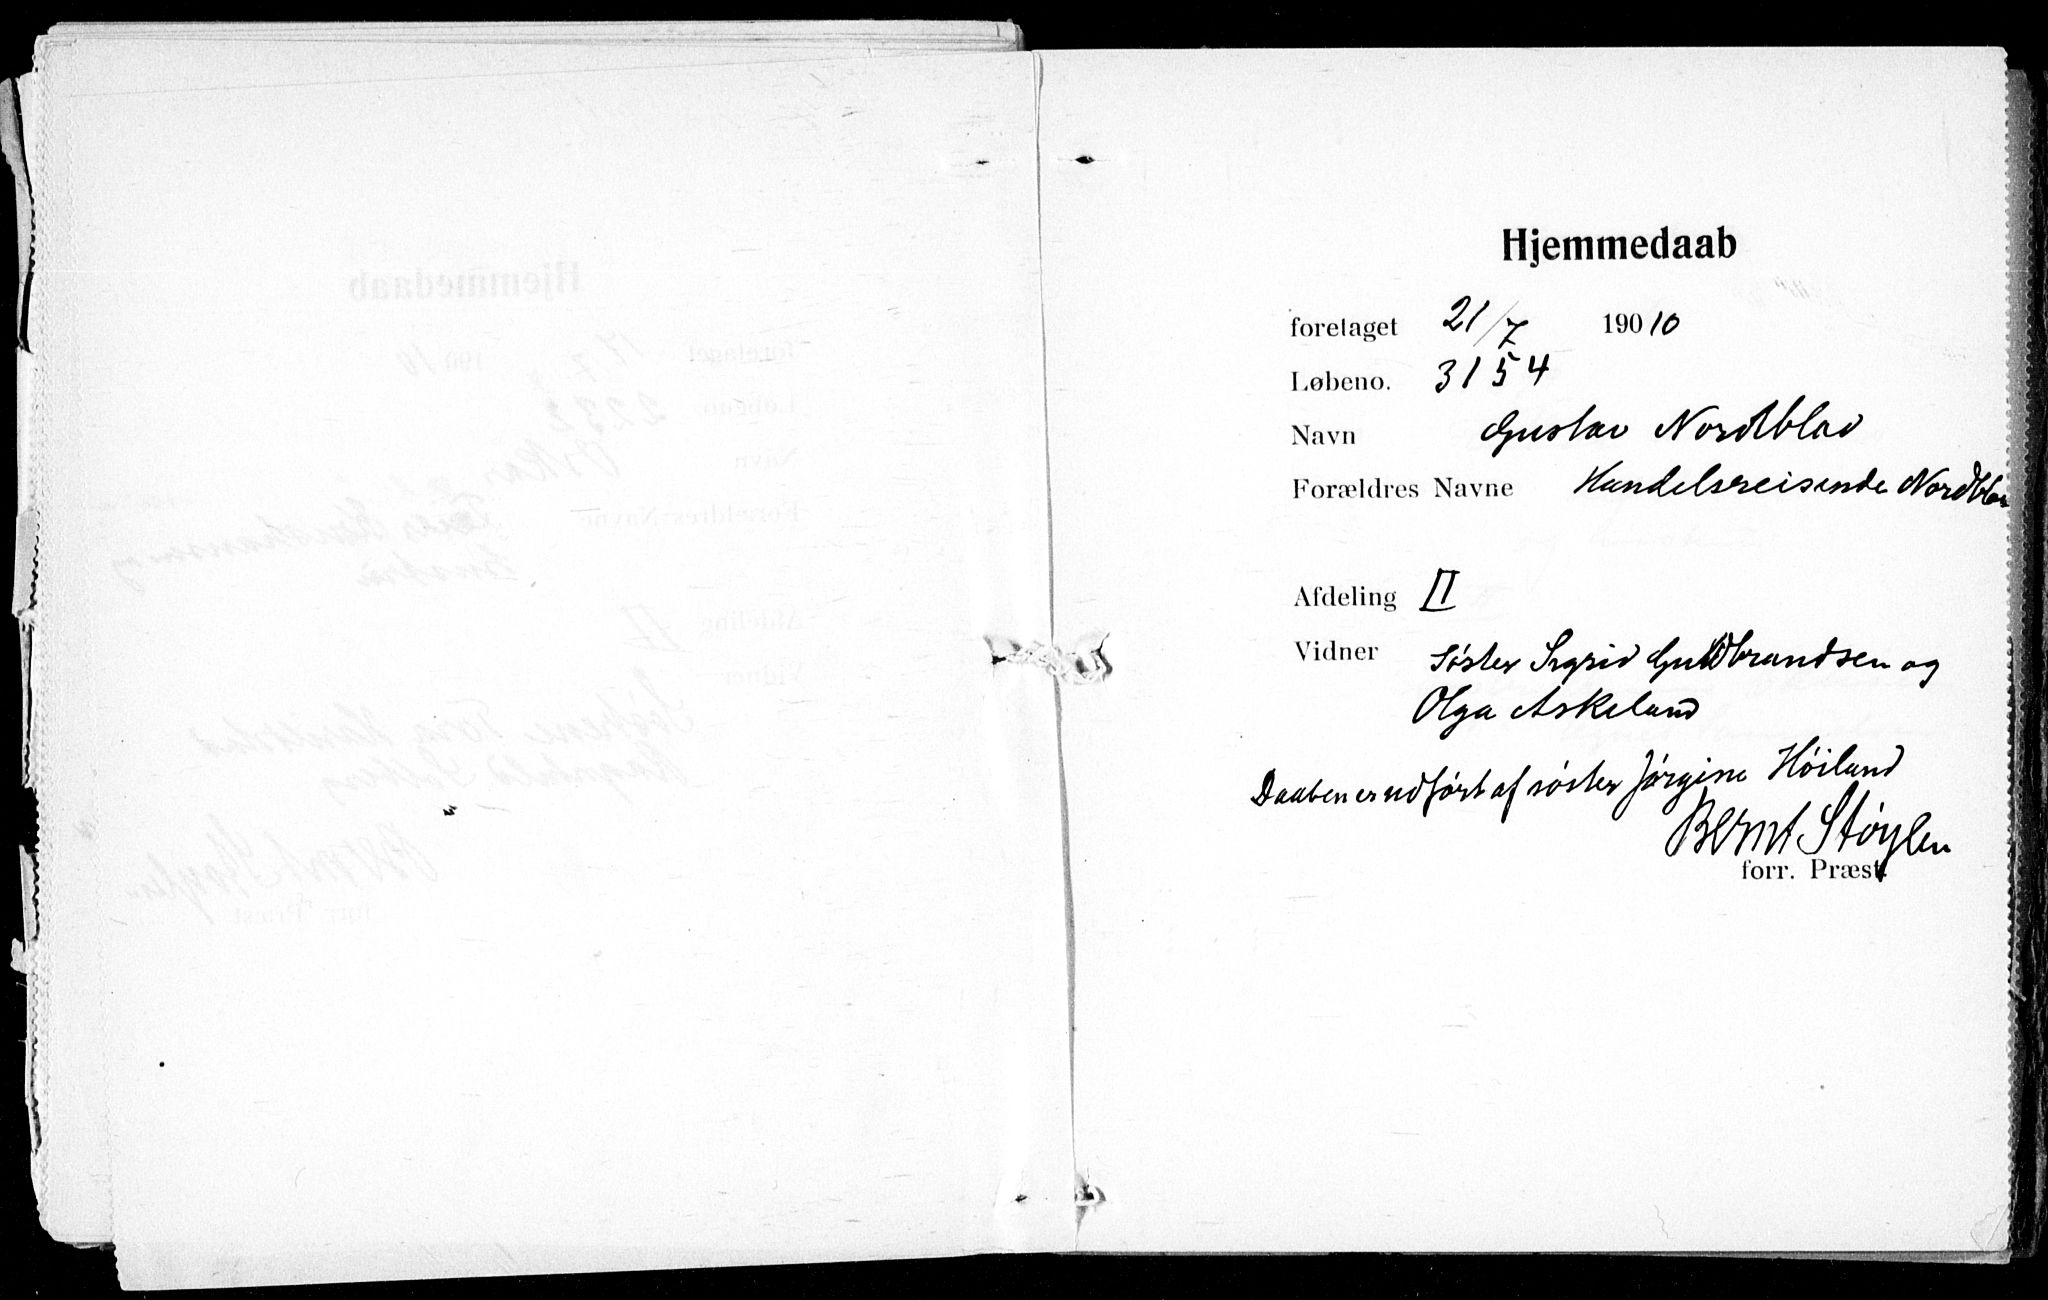 Hjemmedaab
foretaget 21/7 19010
Løbeno. 3154
Navn Gustav Nordblad
Forældres Navne Handelsreisende Nordblad
Afdeling II
Vidner Søster Sigrid Guldbrandsen og
Olga Askeland
Daaben er udført af søster Jørgine Høiland
Bernt Støylen
forr. Præst.